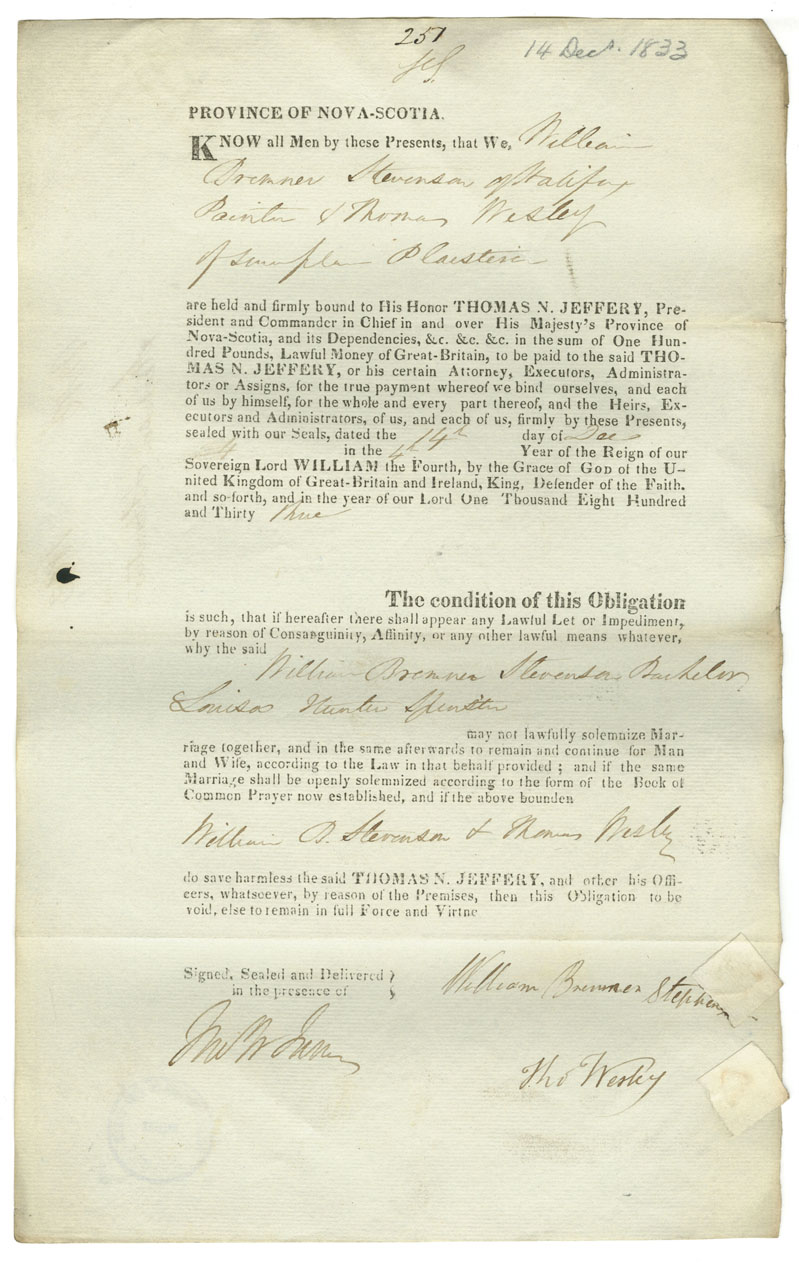 251
14 Decr. 1833
PROVINCE OF NOVA-SCOTIA.
KNOW all Men by these Presents, that We, William
Bremner Stevenson of Halifax
Painter & Thomas Wesley
of same place Plaisterer
are held and firmly bound to His Honor THOMAS N. JEFFERY, Pre-
sident and Commander in Chief in and over His Majesty's Province of
Nova-Scotia, and its Dependencies, &c. &c. &c. in the sum of One Hun-
dred Pounds, Lawful Money of Great-Britain, to be paid to the said THO-
MAS N. JEFFERY, or his certain Attorney, Executors, Administra-
tors or Assigns, for the true payment whereof we bind ourselves, and each
of us by himself, for the whole and every part thereof, and the Heirs, Ex-
ecutors and Administrators, of us, and each of us, firmly by these Presents,
sealed with our Seals, dated the 14th day of Dec
in the 4th Year of the Reign of our
Sovereign Lord WILLIAM the Fourth, by the Grace of God of the U-
nited Kingdom of Great-Britain and Ireland, King, Defender of the Faith.
and so-forth, and in the year of our Lord One Thousand Eight Hundred
and Thirty three
The condition of this Obligation
is such, that if hereafter there shall appear any Lawful Let or Impediment,
by reason of Consanguinity, Affinity, or any other lawful means whatever,
why the said
William Bremner Stevenson Bachelor
Louisa Hunter Spinster
may not lawfully solemnize Mar-
riage together, and in the same afterwards to remain and continue for Man
and Wife, according to the Law in that behalf provided; and if the same
Marriage shall be openly solemnized according to the form of the Book of
Common Prayer now established, and if the above bounden
William B. Stevenson & Thomas Wesley
do save harmless the said THOMAS N. JEFFERY, and other his Offi-
cers, whatsoever, by reason of the Premises, then this Obligation to be
void, else to remain in full Force and Virtue
Signed, Sealed and Delivered }
in the presence of }
William Bremner Stephenson
Thos Wesley